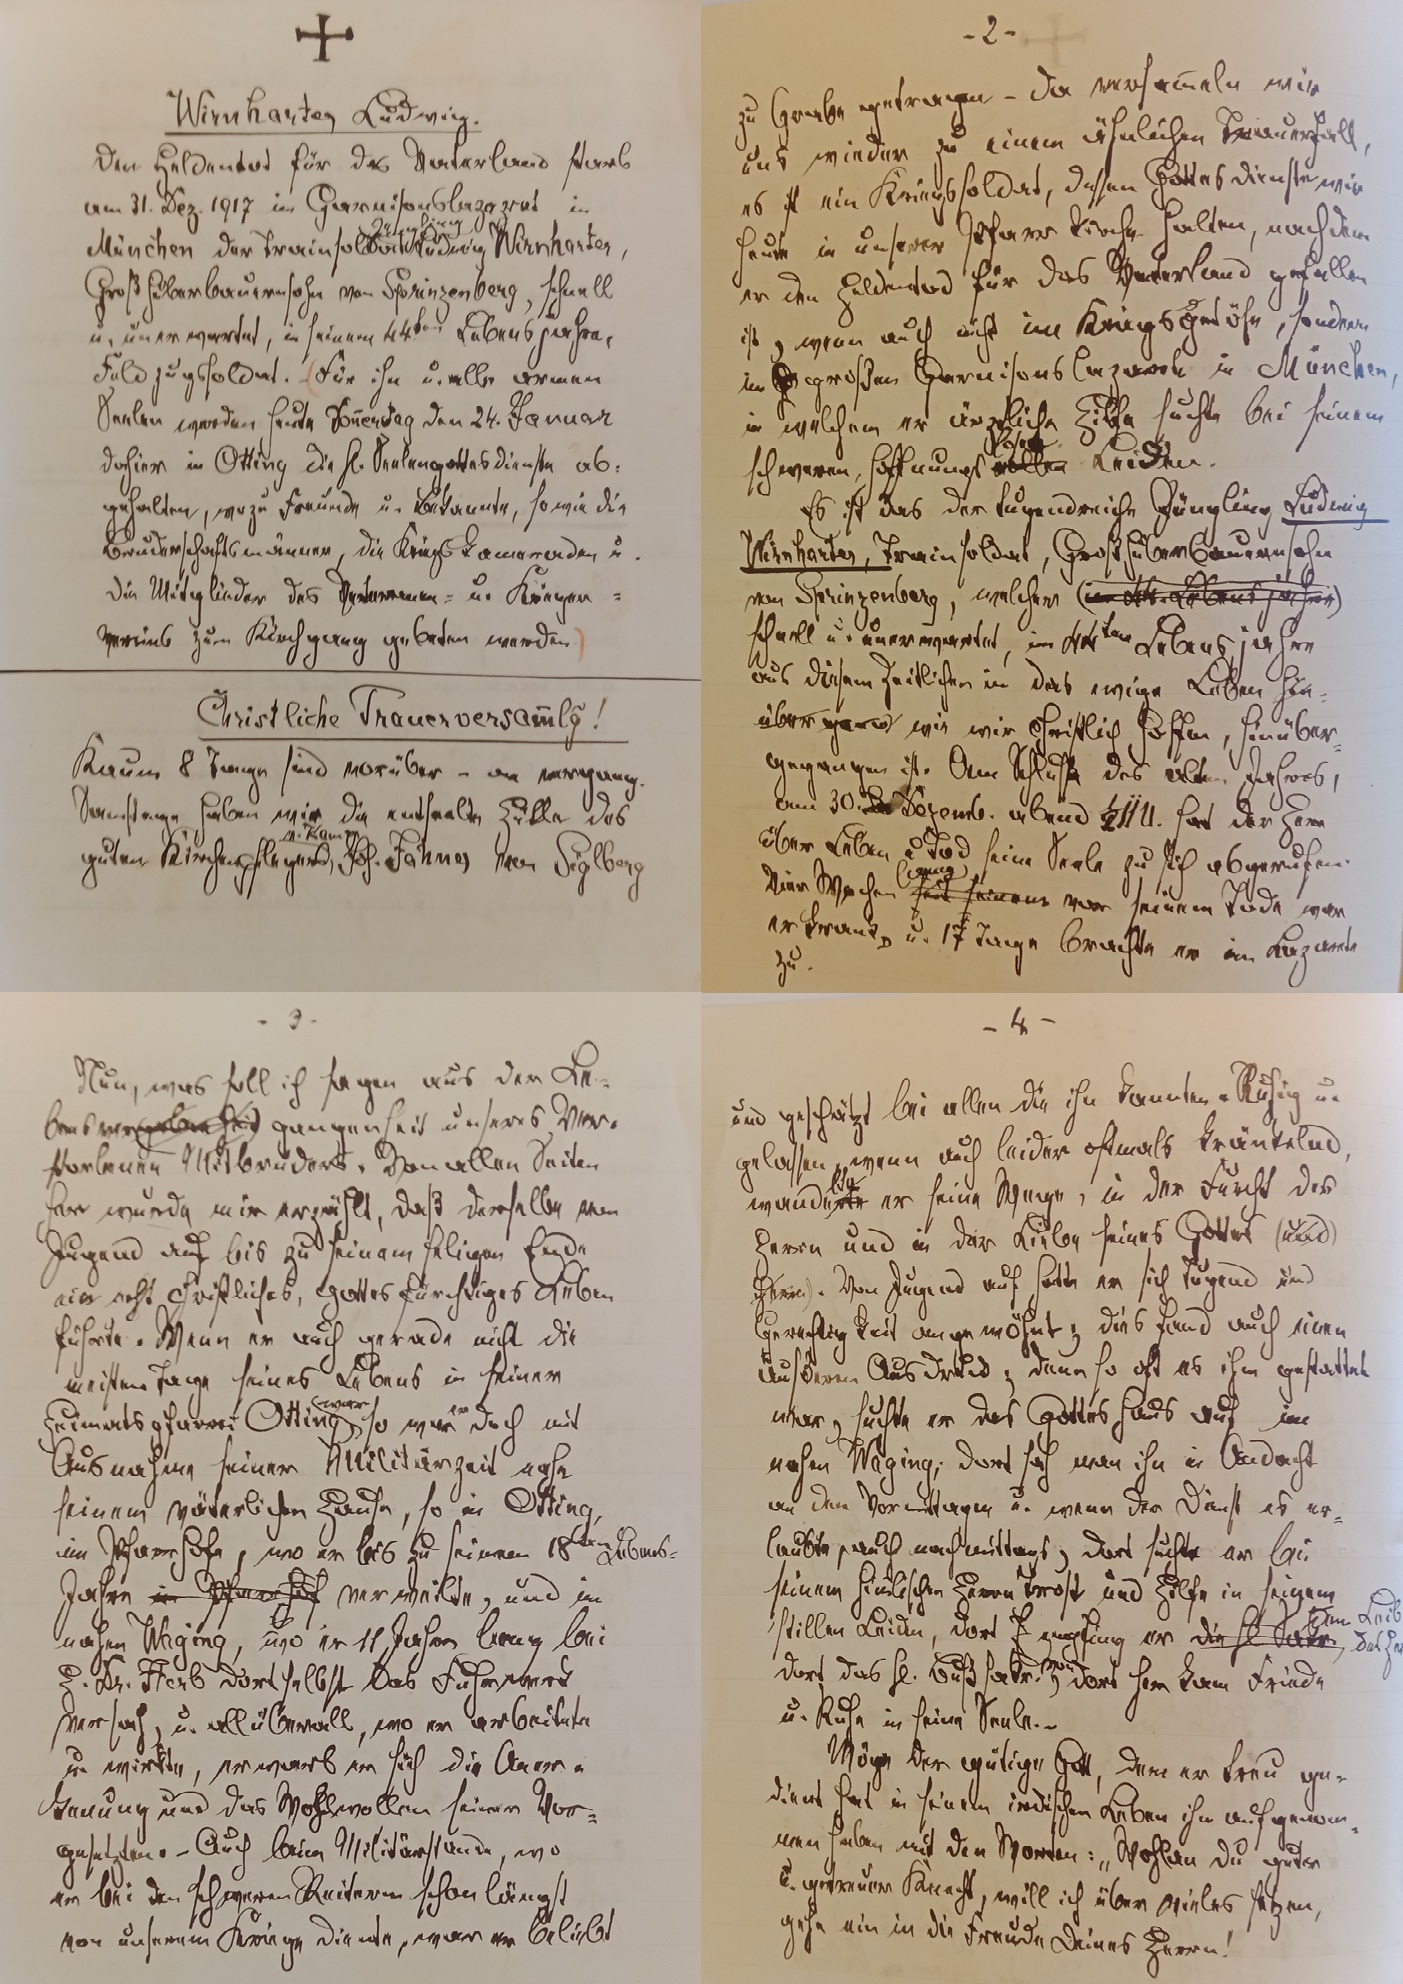 Wirnharter Ludwig.
Den Heldentot für das Vaterland starb
am 31. Dez. 1917 im Garnisonslazaret in
Jüngling
München der Trainsoldat Ludwig Wirnharter,
Großhuberbauernsohn von Sprinzenberg, schnell
u. unerwartet, in seinem 44ten Lebensjahre,
Feldzugssoldat. (Für ihn u. alle armen
Seelen werden heute Donnerstag den 24. Januar
dahier in Otting die hl. Seelengottesdienste ab-
gehalten, wozu Freunde u. Bekannte, sowie die
Bruderschaftsmänner, die Kriegskameraden u.
die Mitglieder des Veteranen- u. Krieger-
vereins zum Kirchgang gebeten werden.)
Christliche Trauerversamlg!
Kaum 8 Tage sind vorüber – am vergang.
Samstage haben wir die entseelte Hülle des
guten Kirchenpflegers, Joh. Fahner von Siglberg
- 2 -
zu Grabe getragen – da versameln wir
uns wieder zu einem ähnlichen Trauerfall,
es ist ein Kriegssoldat, dessen Gottesdienste wir
heute in unserer Pfarrkirche halten, nachdem
er den Heldentod für das Vaterland gefallen
ist, wenn auch nicht im Kriegsgetöse, sondern
im großen Garnisonslazarete in München,
in welchem er ärztliche Hilfe suchte bei seinem
schweren, hoffnungslosen Leiden.
Es ist das der tugendreiche Jüngling Ludwig
Wirnharter, Trainsoldat, Großhuberbauernsohn
von Sprinzenberg, welcher (im 44. Lebensjahre)
schnell u. unerwartet, im 44ten Lebensjahre
aus diesem Zeitlichen in das ewige Leben hin-
über wie wir christlich hoffen, hinüber-
gegangen ist. Am Schluße des alten Jahres,
am 30. Dezemb. abend ½11 U. hat der Herr
über Leben u. Tod seine Seele zu sich abgerufen.
Vier Wochen (lang) seit seinem vor seinem Tode war
er krank, u. 17 Tage brachte er im Lazarete
zu.
- 3 -
Nun, was soll ich sagen aus der Le-
bensvergangenheit unseres Ver-
storbenen Mitbruders. Von allen Seiten
her wurde mir erzählt, daß derselbe von
Jugend auf bis zu seinem seligen Ende
ein recht christliches, gottesfürchtiges Leben
führte. Wenn er auch gerade nicht die
meisten Tage seines Lebens in seiner
Heimatspfarrei Otting (war), so war er doch mit
Ausnahme seiner Militärzeit nahe
seinem väterlichen Hause, so in Otting,
im Pfarrhofe, wo er bis zu seinem 18ten Lebens-
Jahre im Pfarrhof verweilte, und im
nahen Waging, wo er 11 Jahre lang bei
H. Dr. Herb dortselbst das Fuhrwerk
versah, u. allüberall, wo er arbeitete
u. wirkte, erwarb er sich die Aner-
kenung und das Wohlwollen seiner Vor-
gesetzten. – Auch beim Militärstande, wo
er bei den schweren Reitern schon längst
vor unserem Kriege diente, war er beliebt
- 4 -
und geschätzt bei allen die ihn kannten. Ruhig u.
gelassen, wenn auch leider oftmals kränkelnd,
wandelte er seine Wege, in der Furcht des
Herrn und in der Liebe seines Gottes (und
Herrn). Von Jugend auf hatte er sich Tugend und
Gerechtigkeit angewöhnt; dies fand auch einen
äußeren Ausdruck; denn so oft es ihm gestattet
war, suchte er das Gotteshaus auf im
nahen Waging; dort sah man ihn in Andacht
an den Vormittagen u. wenn der Dienst es er-
laubte, auch nachmittags, dort suchte er bei
seinem himlischen Herrn Trost und Hilfe in seinem
stillen Leiden, dort empfing er die hl. Sakr. den Leib
dort das hl. Bußsakr., von dort her kam Friede
u. Ruhe in seine Seele. –
Möge der gütige Gott, dem er treu ge-
dient hat in seinem irdischen Leben ihn aufgenom-
men haben mit den Worten: „Wohlan du guter
u. getreuer Knecht, will ich über vieles setzen,
gehe ein in die Freude Deines Herrn!